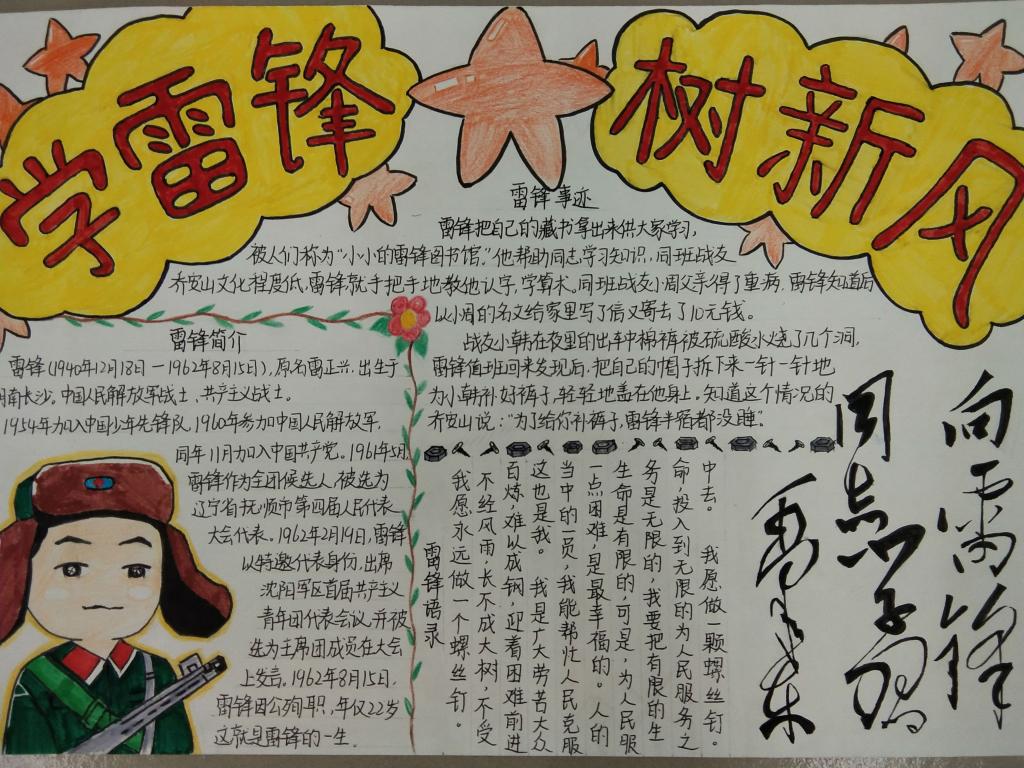 学雷锋
树新风
雷锋事迹
雷锋把自己的藏书拿出来供大家学习,
被人们称为“小小的雷锋图书馆”。他帮助同志学习知识,同班战友
乔安山文化程度低,雷锋就手把手地教他认字,学算术。同班战友小周父亲得了重病,雷锋知道后
以小周的名义给家里写了信又寄去了10元钱。
战友小韩在夜里的出车中棉裤被硫酸水烧了几个洞,
雷锋值班回来发现后,把自己的帽子拆下来一针一针地
为小韩补好裤子,轻轻地盖在他身上。知道这个情况的
乔安山说:“为了给你补裤子,雷锋半宿都没睡”。
雷锋简介
雷锋(1940年12月18日—1962年8月15日),原名雷正兴,出生于
湖南长沙,中国人民解放军战士、共产主义战士。
1954年加入中国少年先锋队,1960年参加中国人民解放军,
同年11月加入中国共产党。1961年5月,
雷锋作为全团候选人,被选为
辽宁省抚顺市第四届人民代表
大会代表。1962年2月19日,雷锋
以特邀代表身份,出席
沈阳军区首届共产主义
青年团代表会议,并被
选为主席团成员在大会
上发言。1962年8月15日,
雷锋因公殉职,年仅22岁
这就是雷锋的一生。
雷锋语录
我愿永远做一个螺丝钉。
不经风雨,长不成大树,不受
百炼,难以成钢,迎着困难前进
这也是我。 我是广大劳苦大众
当中的一员,我能帮忙人民克服
一点困难,是最幸福的。人的
生命是有限的,可是,为人民服
务是无限的,我要把有限的生
命,投入到无限的为人民服务之
中去。 我愿做一颗螺丝钉。
向雷锋
同志学习
毛泽东